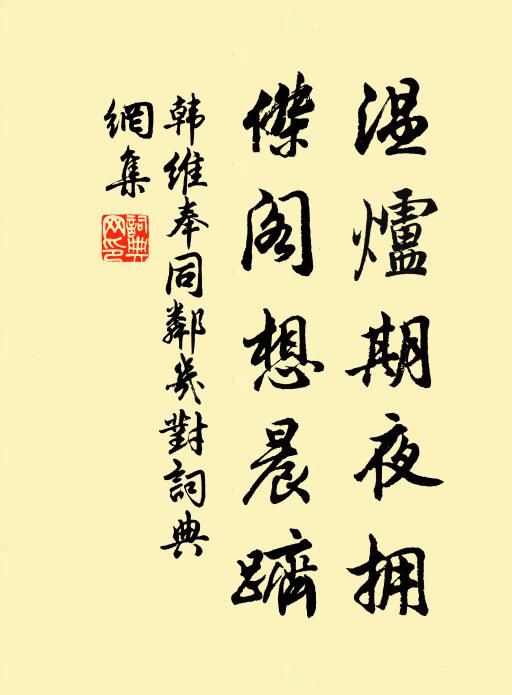 溫爐期夜拥
傑阁想晨躋
韩维奉同鄰幾對詞典
網集
詞典網印